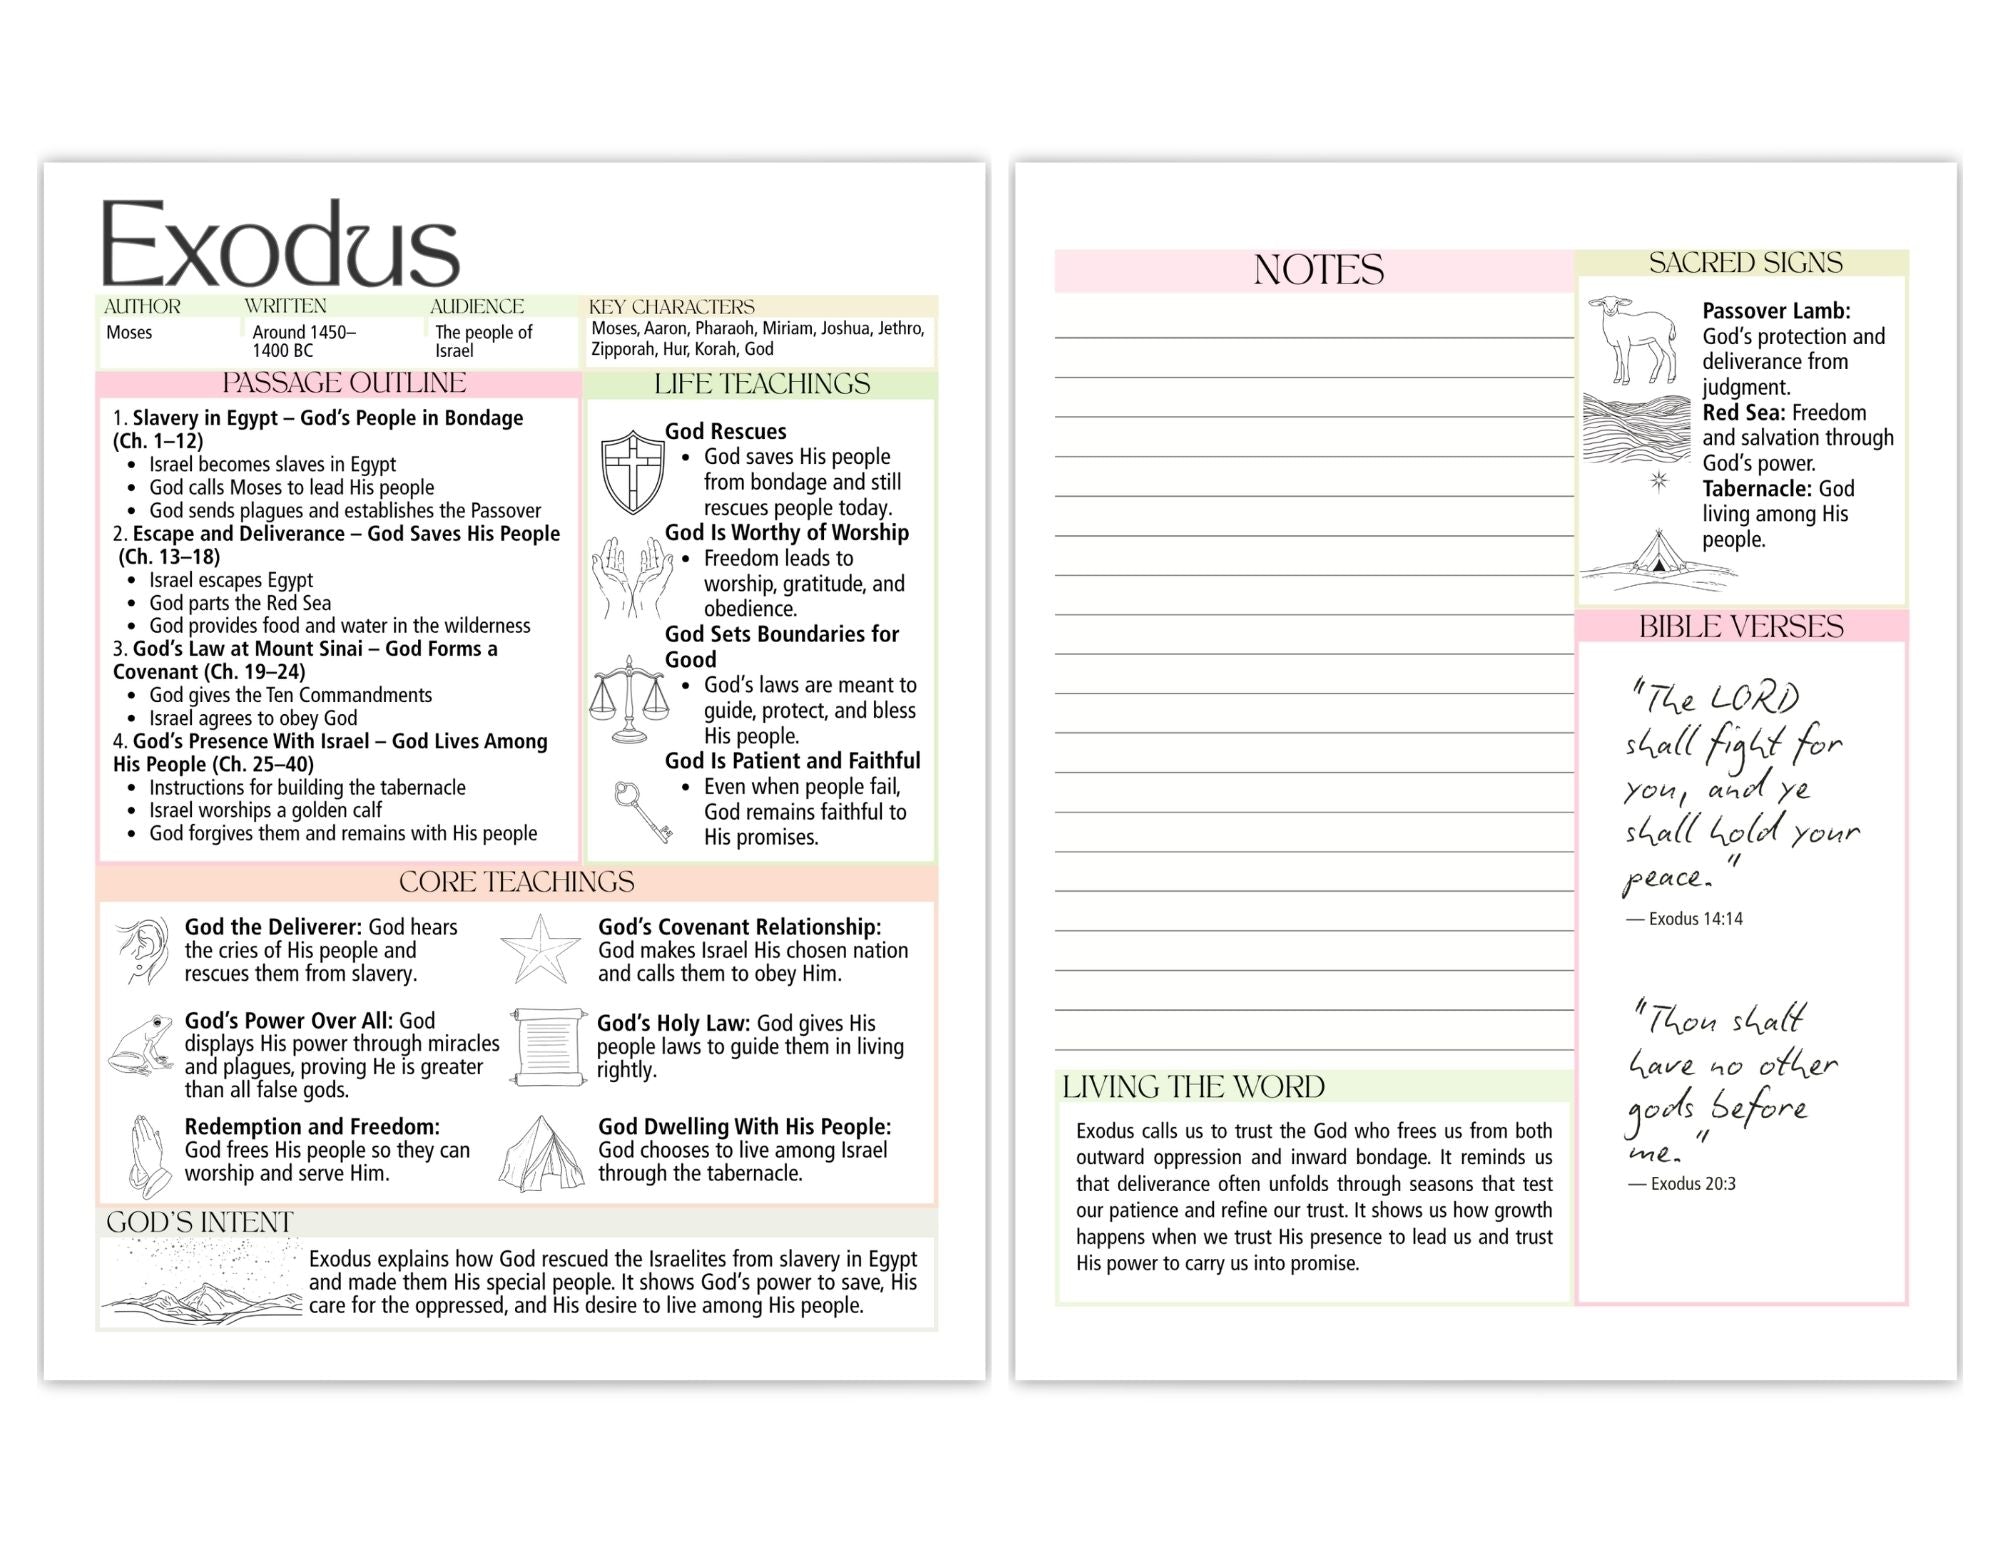 Exodus
AUTHOR
Moses
WRITTEN
Around 1450–
1400 BC
AUDIENCE
The people of
Israel
KEY CHARACTERS
Moses, Aaron, Pharaoh, Miriam, Joshua, Jethro,
Zipporah, Hur, Korah, God
PASSAGE OUTLINE
1. Slavery in Egypt – God's People in Bondage
(Ch. 1–12)
• Israel becomes slaves in Egypt
• God calls Moses to lead His people
• God sends plagues and establishes the Passover
2. Escape and Deliverance – God Saves His People
(Ch. 13–18)
• Israel escapes Egypt
• God parts the Red Sea
• God provides food and water in the wilderness
3. God's Law at Mount Sinai – God Forms a
Covenant (Ch. 19–24)
• God gives the Ten Commandments
• Israel agrees to obey God
4. God's Presence With Israel – God Lives Among
His People (Ch. 25–40)
• Instructions for building the tabernacle
• Israel worships a golden calf
• God forgives them and remains with His people
LIFE TEACHINGS
God Rescues
• God saves His people
from bondage and still
rescues people today.
God Is Worthy of Worship
• Freedom leads to
worship, gratitude, and
obedience.
God Sets Boundaries for
Good
• God's laws are meant to
guide, protect, and bless
His people.
God Is Patient and Faithful
• Even when people fail,
God remains faithful to
His promises.
CORE TEACHINGS
God the Deliverer: God hears
the cries of His people and
rescues them from slavery.
God's Covenant Relationship:
God makes Israel His chosen nation
and calls them to obey Him.
God's Power Over All: God
displays His power through miracles
and plagues, proving He is greater
than all false gods.
God's Holy Law: God gives His
people laws to guide them in living
rightly.
Redemption and Freedom:
God frees His people so they can
worship and serve Him.
God Dwelling With His People:
God chooses to live among Israel
through the tabernacle.
GOD'S INTENT
Exodus explains how God rescued the Israelites from slavery in Egypt
and made them His special people. It shows God's power to save, His
care for the oppressed, and His desire to live among His people.
NOTES
LIVING THE WORD
Exodus calls us to trust the God who frees us from both
outward oppression and inward bondage. It reminds us
that deliverance often unfolds through seasons that test
our patience and refine our trust. It shows us how growth
happens when we trust His presence to lead us and trust
His power to carry us into promise.
SACRED SIGNS
Passover Lamb:
God's protection and
deliverance from
judgment.
Red Sea: Freedom
and salvation through
God's power.
Tabernacle: God
living among His
people.
BIBLE VERSES
"The LORD
shall fight for
you, and ye
shall hold your
peace."
— Exodus 14:14
"Thou shalt
have no other
gods before
me."
— Exodus 20:3